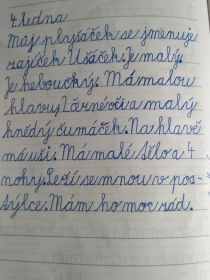 4. ledna
Můj plyšáček se jmenuje
zajíček Ušáček. Je malý.
Je heboučký. Má malou
hlavu, 2 černé oči a malý
hnědý čumáček. Na hlavě
má uši. Má malé tělo a 4
nohy. Leží se mnou v pos-
týlce. Mám ho moc rád.